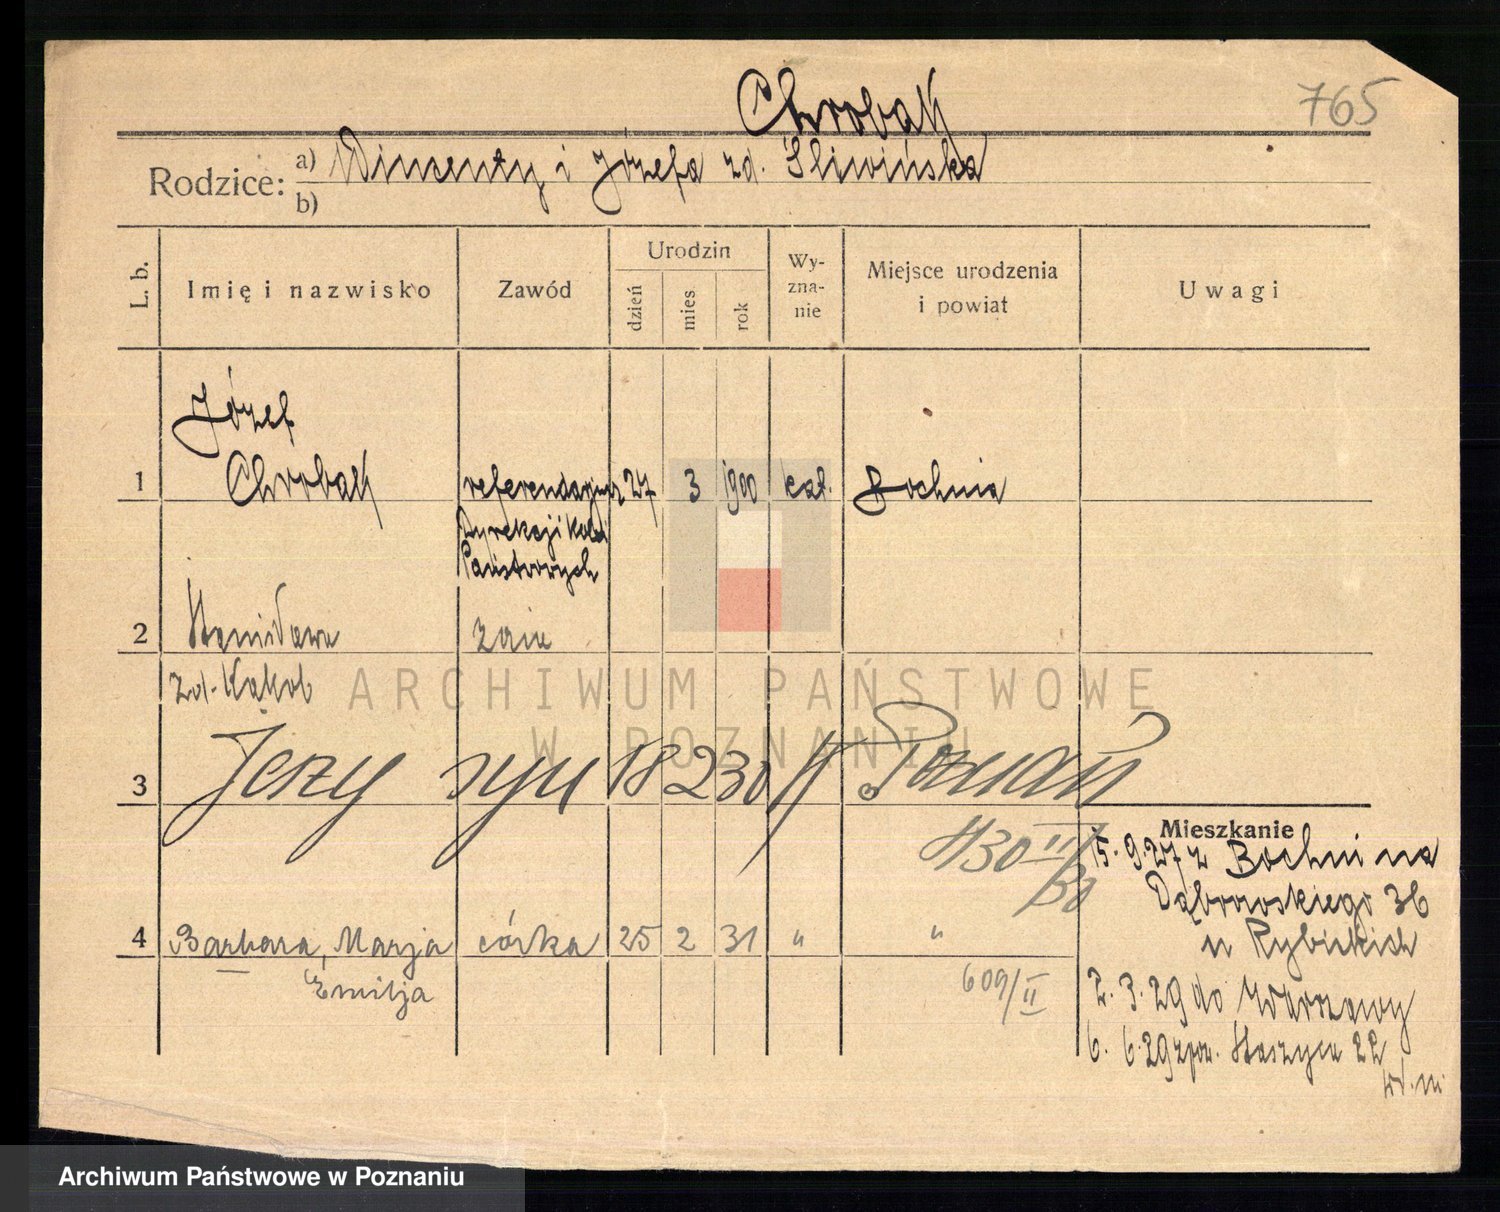 765
Chrobak
Rodzice: a) Wincenty i Józefa zd. Śliwińska
b)
L. b. Imię i nazwisko Zawód Urodzin dzień mies rok Wyznanie Miejsce urodzenia i powiat Uwagi
Józef
1 Chrobak referendarjusz 27 3 1900 kat. Bochnia
Dyrekcji Kolei
Państwowych
2 Stanisława żona
zd. Kąkol
3 Jerzy syn 18 2 30 Poznań
Mieszkanie
15. 9. 27 z Bochni na
Dąbrowskiego 36
u Rybickich
4 Barbara, Marja córka 25 2 31 " "
Emilja
609/II
2. 3. 29 do Warszawy
6. 6. 29 zpow. Staszyca 22
ARCHIWUM PAŃSTWOWE
W POZNANIU
Archiwum Państwowe w Poznaniu